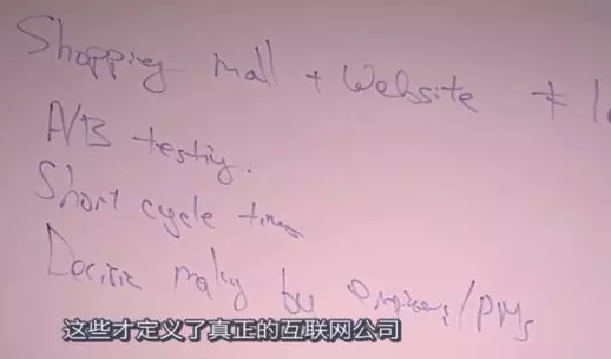 Shopping mall + Website ≠
A/B testing.
Short cycle times
Decision making by engineers/PMs
这些才定义了真正的互联网公司